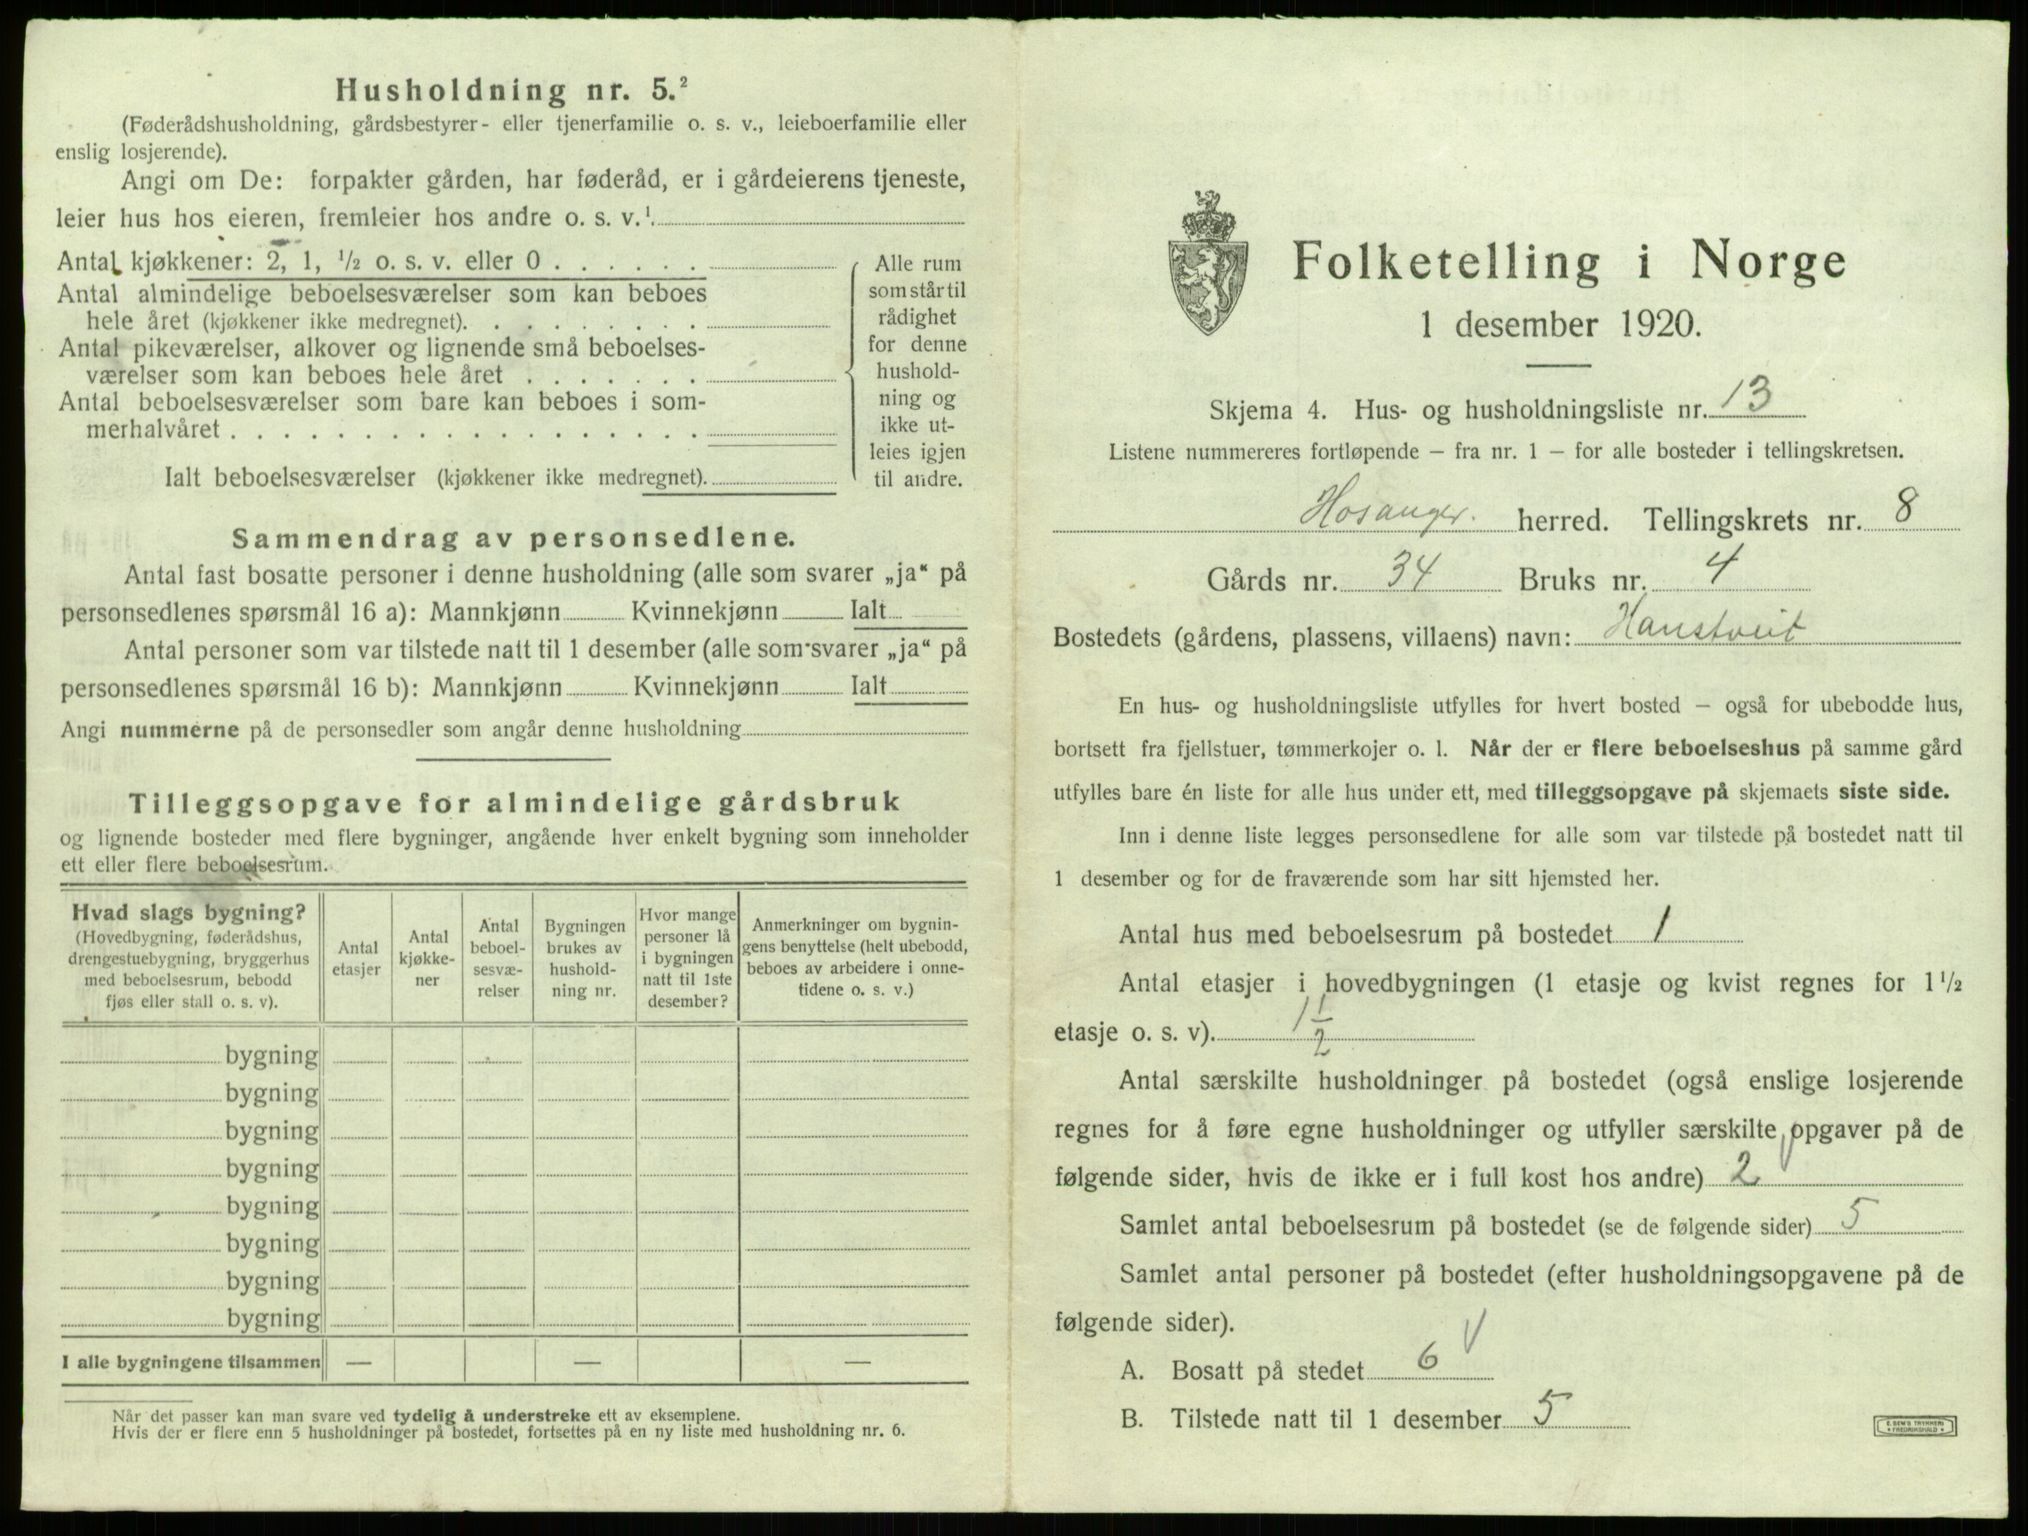 Husholdning nr. 5.²
(Føderådshusholdning, gårdsbestyrer- eller tjenerfamilie o. s. v., leieboerfamilie eller
enslig losjerende).
Angi om De: forpakter gården, har føderåd, er i gårdeierens tjeneste,
leier hus hos eieren, fremleier hos andre o. s. v.¹
Antal kjøkkener: 2, 1, ½ o. s. v. eller 0 . . . . . .
Antal almindelige beboelsesværelser som kan beboes
hele året (kjøkkener ikke medregnet). . . . . . . . .
Antal pikeværelser, alkover og lignende små beboelses-
værelser som kan beboes hele året . . . . . . .
Antal beboelsesværelser som bare kan beboes i som-
merhalvåret . . . . . . . . . . . . . . . . . .
Ialt beboelsesværelser (kjøkkener ikke medregnet).
Alle rum
som står til
rådighet
for denne
hushold-
ning og
ikke ut-
leies igjen
til andre.
Sammendrag av personsedlene.
Antal fast bosatte personer i denne husholdning (alle som svarer „ja“ på
personsedlenes spørsmål 16 a): Mannkjønn Kvinnekjønn Ialt
Antal personer som var tilstede natt til 1 desember (alle som svarer „ja“ på
personsedlenes spørsmål 16 b): Mannkjønn Kvinnekjønn Ialt
Angi nummerne på de personsedler som angår denne husholdning
Tilleggsopgave for almindelige gårdsbruk
og lignende bosteder med flere bygninger, angående hver enkelt bygning som inneholder
ett eller flere beboelsesrum.
Hvad slags bygning?
(Hovedbygning, føderådshus,
drengestuebygning, bryggerhus
med beboelsesrum, bebodd
fjøs eller stall o. s. v).
Antal
etasjer
Antal
kjøkke-
ner
Antal
beboel-
sesvæ-
relser
Bygningen
brukes av
hushold-
ning nr.
Hvor mange
personer lå
i bygningen
natt til 1ste
desember?
Anmerkninger om bygnin-
gens benyttelse (helt ubebodd,
beboes av arbeidere i onne-
tidene o. s. v.)
bygning
bygning
bygning
bygning
bygning
bygning
bygning
bygning
I alle bygningene tilsammen — — —
Når det passer kan man svare ved tydelig å understreke ett av eksemplene.
Hvis der er flere enn 5 husholdninger på bostedet, fortsettes på en ny liste med husholdning nr. 6.
Folketelling i Norge
1 desember 1920.
Skjema 4. Hus- og husholdningsliste nr. 13
Listene nummereres fortløpende — fra nr. 1 — for alle bosteder i tellingskretsen.
Hosanger. herred. Tellingskrets nr. 8
Gårds nr. 34 Bruks nr. 4
Bostedets (gårdens, plassens, villaens) navn: Hanstveit
En hus- og husholdningsliste utfylles for hvert bosted — også for ubebodde hus,
bortsett fra fjellstuer, tømmerkojer o. l. Når der er flere beboelseshus på samme gård
utfylles bare én liste for alle hus under ett, med tilleggsopgave på skjemaets siste side.
Inn i denne liste legges personsedlene for alle som var tilstede på bostedet natt til
1 desember og for de fraværende som har sitt hjemsted her.
Antal hus med beboelsesrum på bostedet 1
Antal etasjer i hovedbygningen (1 etasje og kvist regnes for 1½
etasje o. s. v). 1½
Antal særskilte husholdninger på bostedet (også enslige losjerende
regnes for å føre egne husholdninger og utfyller særskilte opgaver på de
følgende sider, hvis de ikke er i full kost hos andre) 2
Samlet antal beboelsesrum på bostedet (se de følgende sider) 5
Samlet antal personer på bostedet (efter husholdningsopgavene på de
følgende sider).
A. Bosatt på stedet 6
B. Tilstede natt til 1 desember 5
E. SEM'S TRYKKERI
FREDRIKSHALD